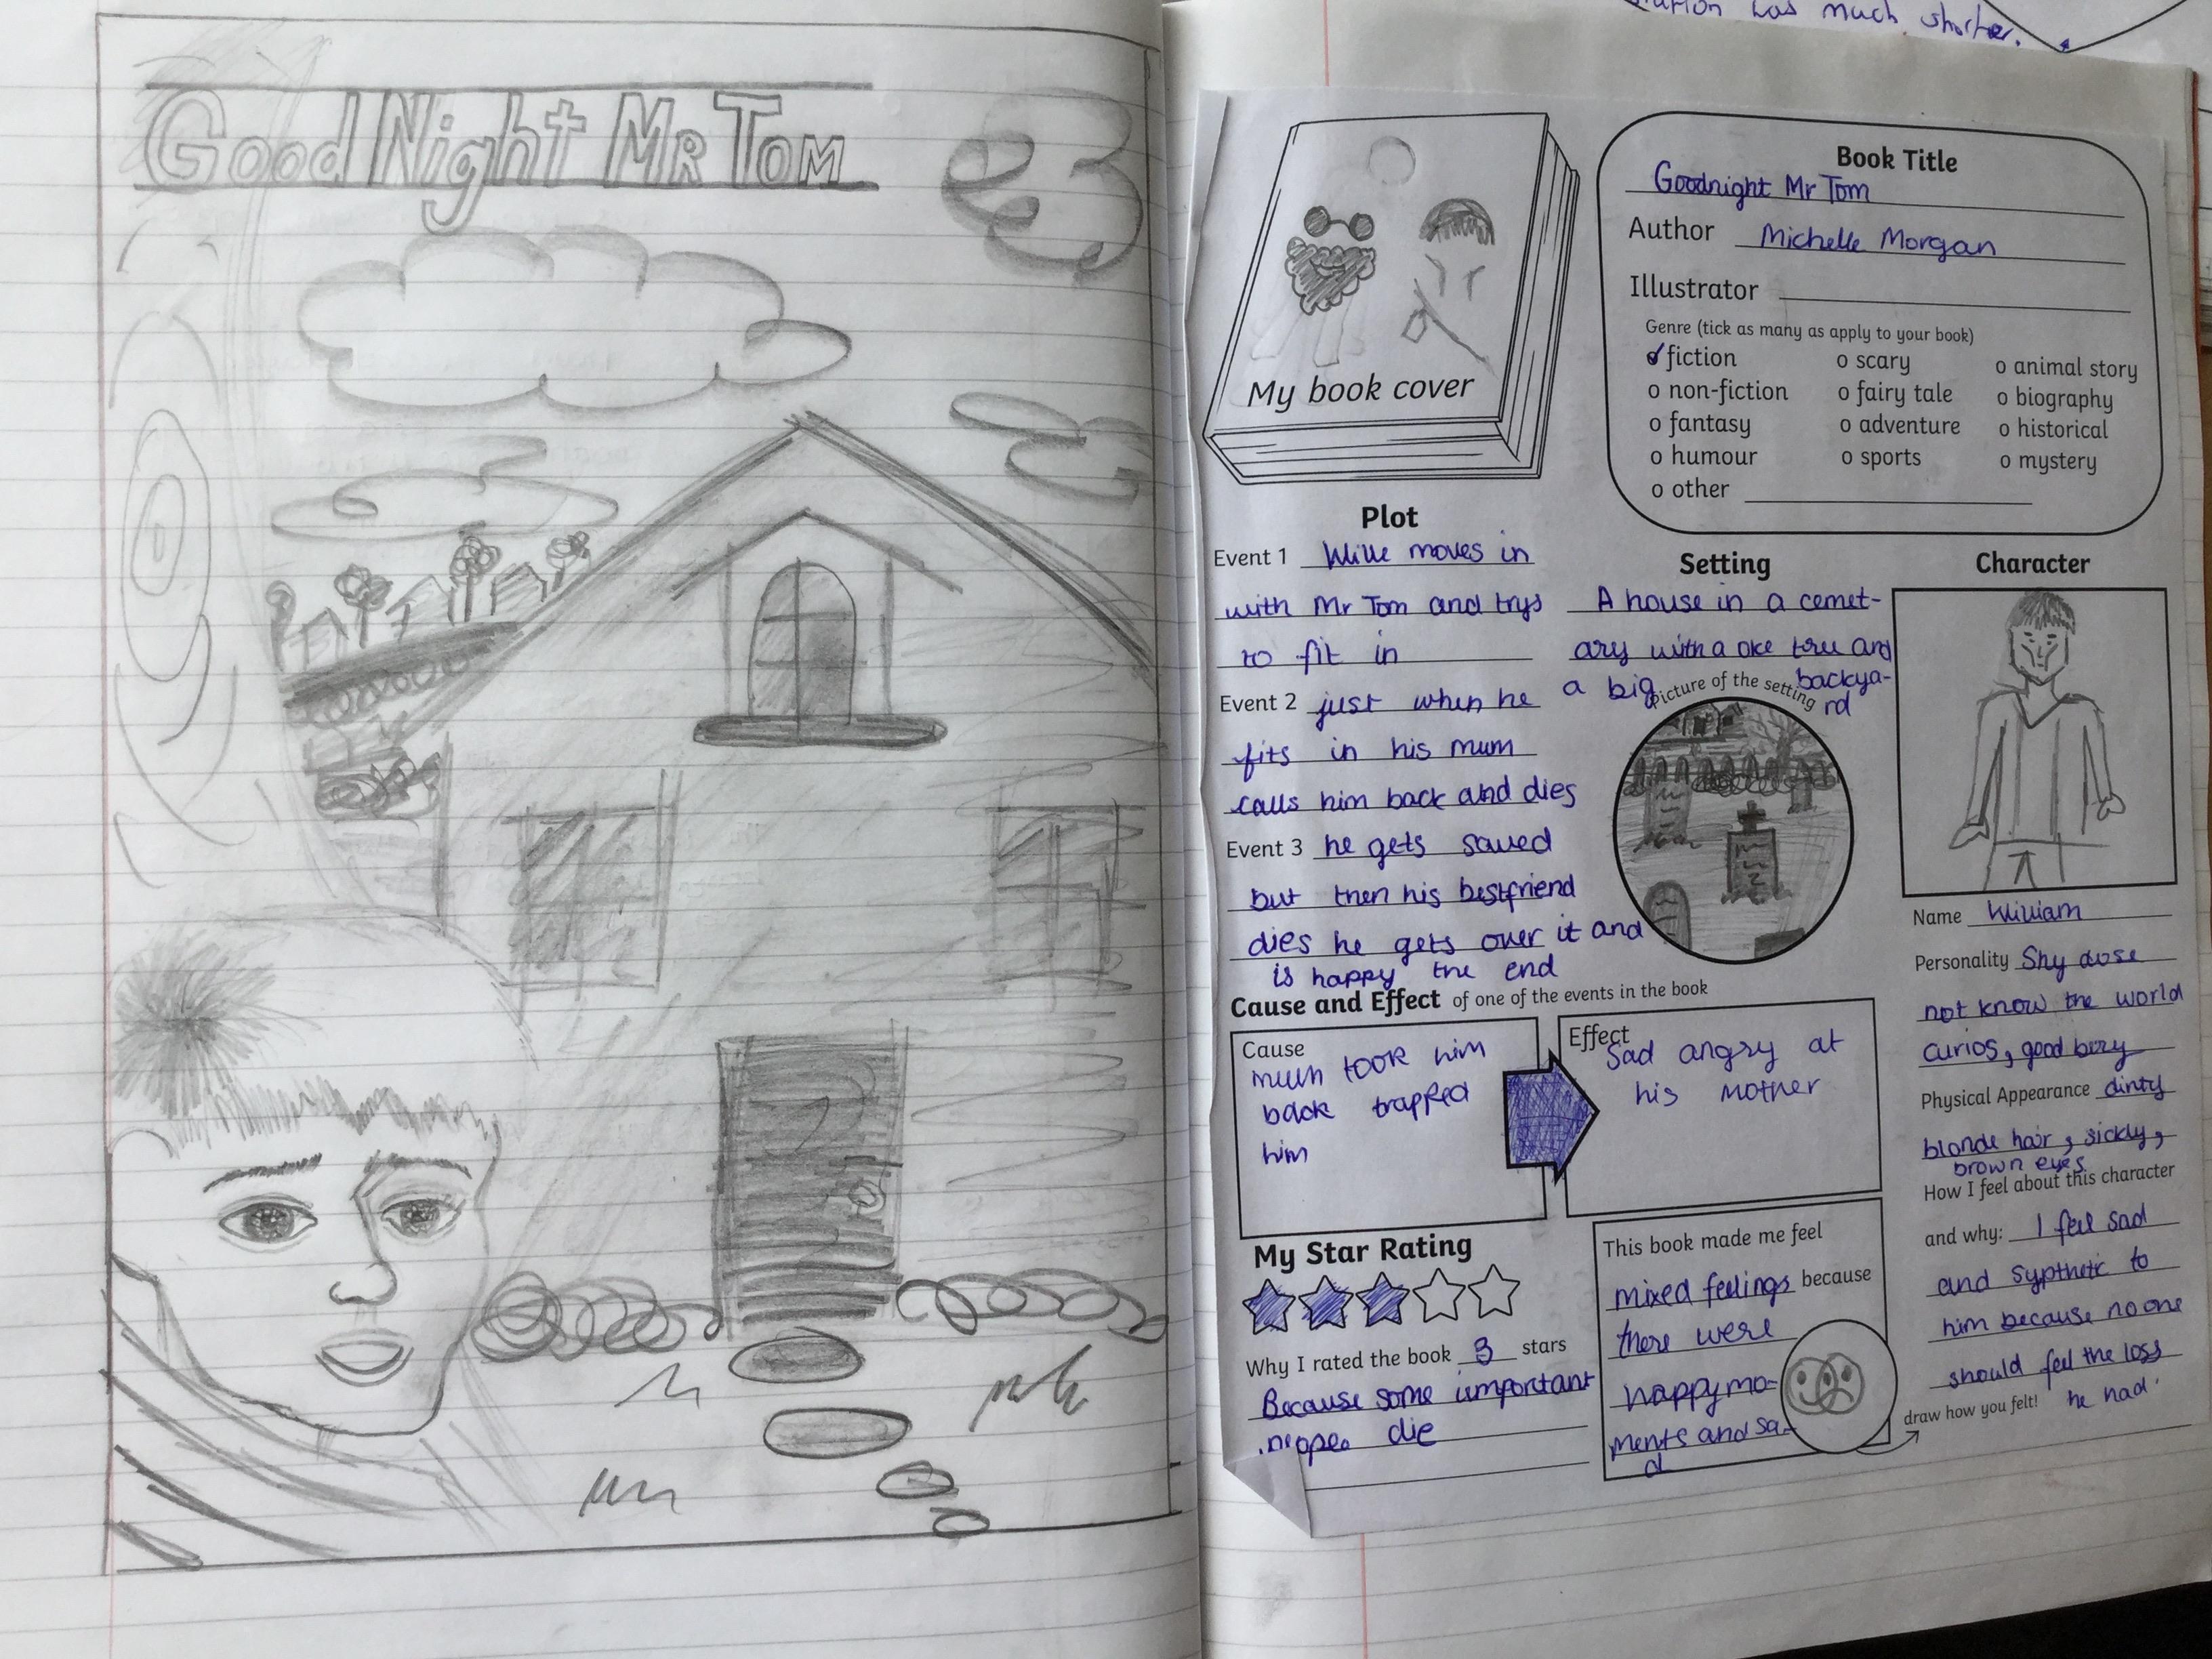 Good Night Mr Tom
was much shorter.
My book cover
Book Title
Goodnight Mr Tom
Author Michelle Morgan
Illustrator
Genre (tick as many as apply to your book)
fiction
o non-fiction
o fantasy
o humour
o other
o scary
o fairy tale
o adventure
o sports
o animal story
o biography
o historical
o mystery
Plot
Event 1 Wille moves in
with Mr Tom and trys
to fit in
Event 2 just when he
fits in his mum
calls him back and dies
Event 3 he gets saved
but then his bestfriend
dies he gets over it and
is happy the end
Setting
A house in a cemet-
ary with a oke tree and
a big backya-
rd
Picture of the setting
Character
Name William
Personality Shy dose
not know the world
curios, good boy
Physical Appearance dirty
blonde hair, sickly,
brown eyes
How I feel about this character
and why: I feel sad
and sypthetic to
him because no one
should feel the loss
he had
Cause and Effect of one of the events in the book
Cause
mum took him
back trapped
him
Effect
Sad angry at
his mother
My Star Rating
Why I rated the book 3 stars
Because some important
die
This book made me feel
mixed feelings because
there were
happy mo-
ments and sa-
d
draw how you felt!